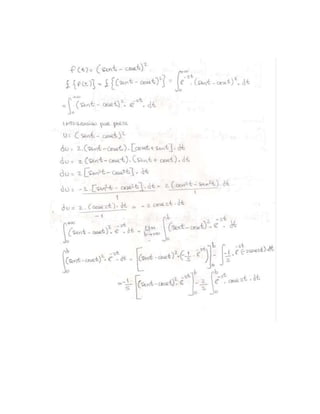 f(t) = (sent - cost)²
£{f(t)} = £{(sent - cost)²} = ∫₀^+∞ e^-st . (sent - cost)² . dt
= ∫₀^+∞ (sent - cost)² . e^-st . dt
u = (sent - cost)²
du = 2. (sent - cost). [cost + sent]. dt
du = 2 (sent - cost). (sent + cost). dt
du = 2 [sen²t - cos²t]. dt
du = -2 [sen²t - cos²t]. dt = 2 (cos²t - sen²t). dt
-1
du = 2. (cos2t). dt = -2 cos2t. dt
-1
∫₀^+∞ (sent - cost)². e^-st. dt = lim ∫₀^b (sent - cost)². e^-st. dt
∫₀^b (sent - cost)². e^-st. dt = [(sent - cost)². (-1/s . e^-st)]₀^b - ∫₀^b -1/s . e^-st (-2cos2t) dt
= -1/s [(sent - cost)². e^-st]₀^b - 2/s ∫₀^b e^-st . cos2t . dt